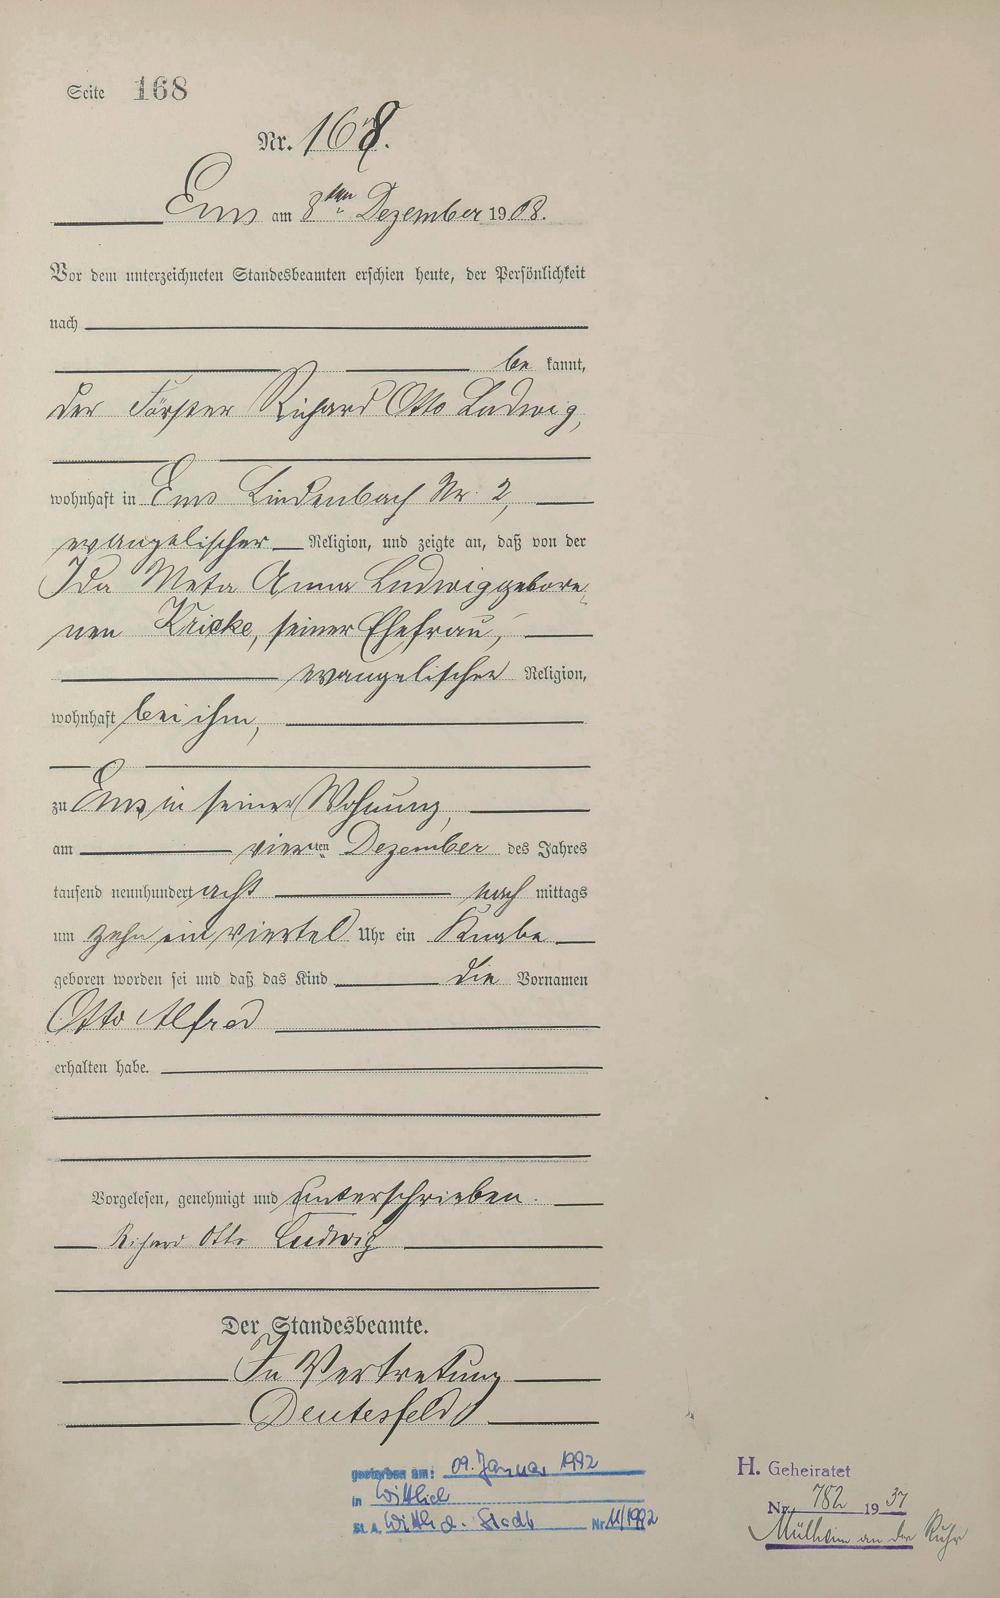 Seite 168
Nr. 168.
Ems am 8ten Dezember 1908.
Vor dem unterzeichneten Standesbeamten erschien heute, der Persönlichkeit
nach
be kannt,
der Förster Richard Otto Ludwig,
wohnhaft in Ems Lindenbach Nr. 2,
evangelischer Religion, und zeigte an, daß von der
Ida Meta Anna Ludwig gebore-
nen Kricke, seiner Ehefrau,
evangelischer Religion,
wohnhaft bei ihm,
zu Ems in seiner Wohnung,
am vierten Dezember des Jahres
tausend neunhundert acht nach mittags
um zehn ein viertel Uhr ein Knabe
geboren worden sei und daß das Kind die Vornamen
Otto Alfred
erhalten habe.
Vorgelesen, genehmigt und unterschrieben.
Richard Otto Ludwig
Der Standesbeamte.
In Vertretung
Deutesfeld
gestorben am: 09. Januar 1992
in Wittlich
St. A. Wittlich-Stadt Nr. 11/1992
H. Geheiratet
Nr. 782 1937
Mülheim an der Ruhr